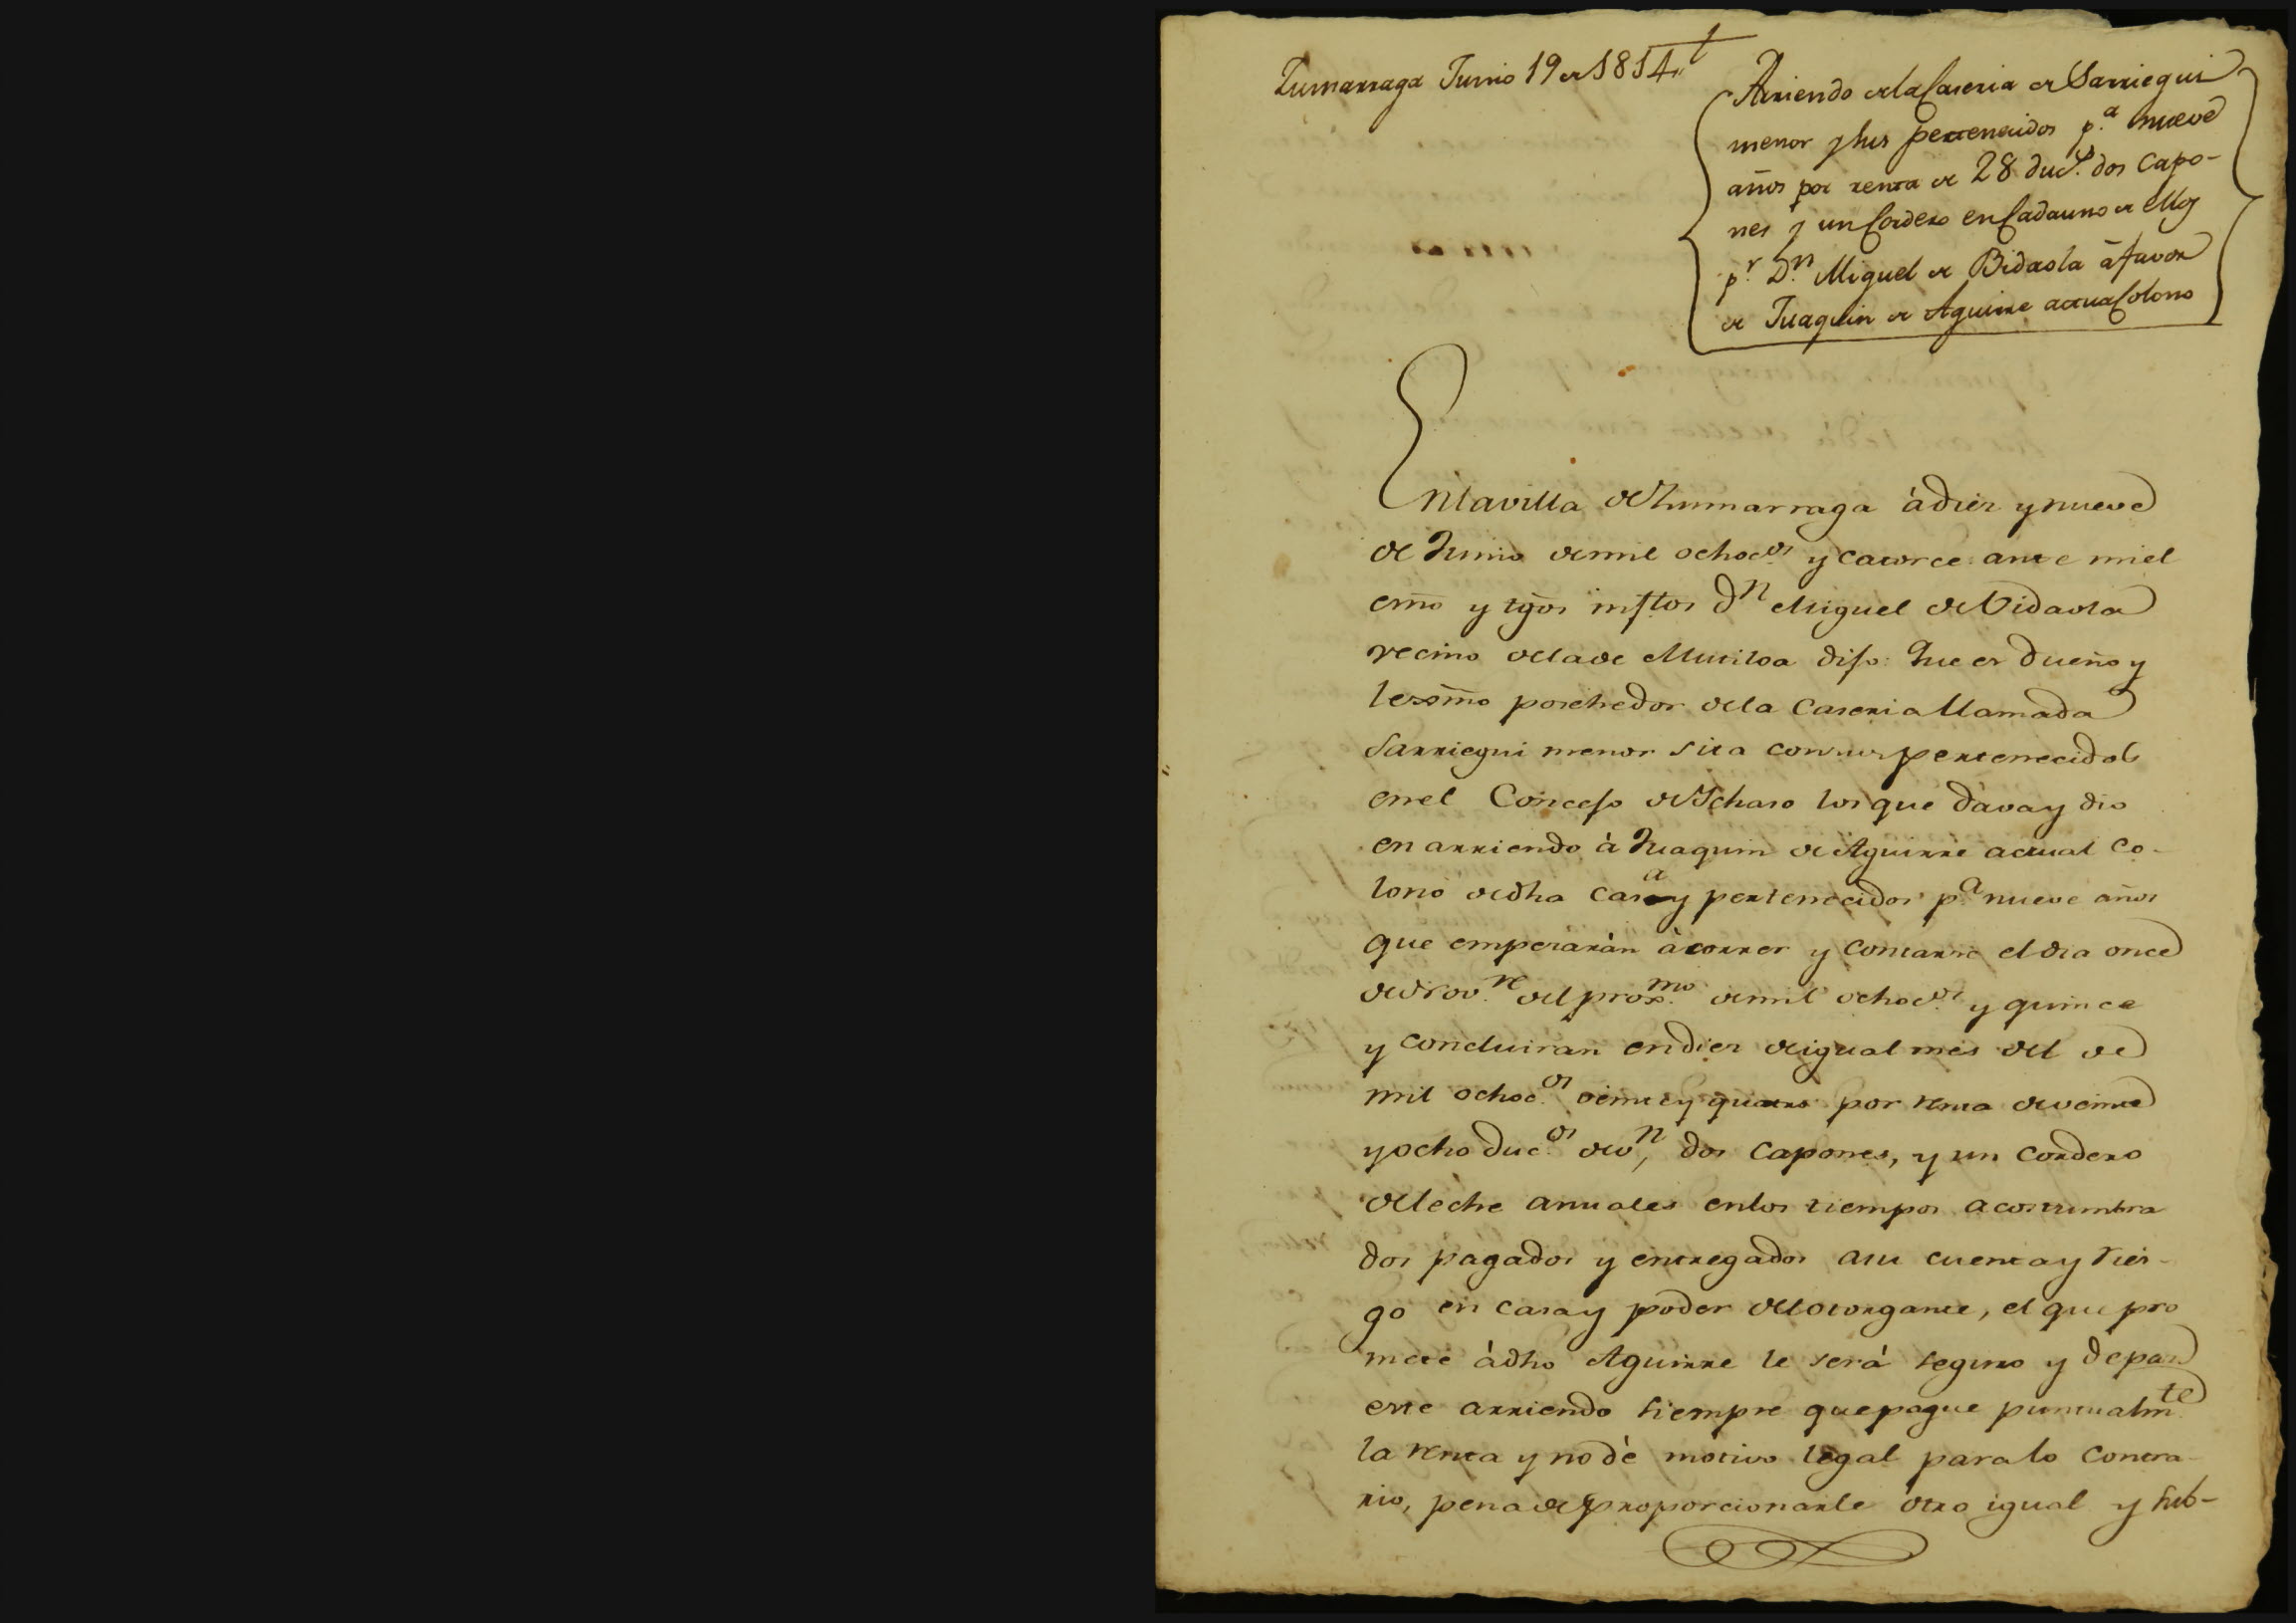 Zumarraga Junio 19 de 1814
Arriendo de la Caseria de Sarriegui
menor y sus pertenecidos p.a nueve
años por renta de 28 duc.s dos capo-
nes y un Cordero en Cada uno de ellos
p.r D.n Miguel de Bidaola à favor
de Juaquin de Aguirre actual Colono
En la villa de Zumarraga à diez y nueve
de Junio de mil ochoc.os y catorce ante mi el
esno y tgos inftos Dn Miguel de Vidaola
vecino de la de Mutiloa dijo: Que es dueño y
lexmo posehedor de la Caseria llamada
Sarriegui menor sita con sus pertenecidos
en el Concejo de Ychaso los que dava y dio
en arriendo à Juaquin de Aguirre actual Co-
lono de dha casa y pertenecidos p.a nueve años
que empezaràn à correr y contarse el dia once
de Nov.re del prox.mo de mil ochoc.os y quince
y concluiran en diez de igual mes del de
mil ochoc.os veinte y quatro por renta de veinte
y ocho duc.os de v.n, dos capones, y un cordero
de leche anuales en los tiempos acostumbra
dos pagados y entregados a su cuenta y ries-
go en casa y poder del otorgante, el que pro
mete à dho Aguirre le serà seguro y de paz
este arriendo siempre que pague puntualm.te
la renta y no dè motivo legal para lo contra-
rio, pena de proporcionarle otro igual y sub-